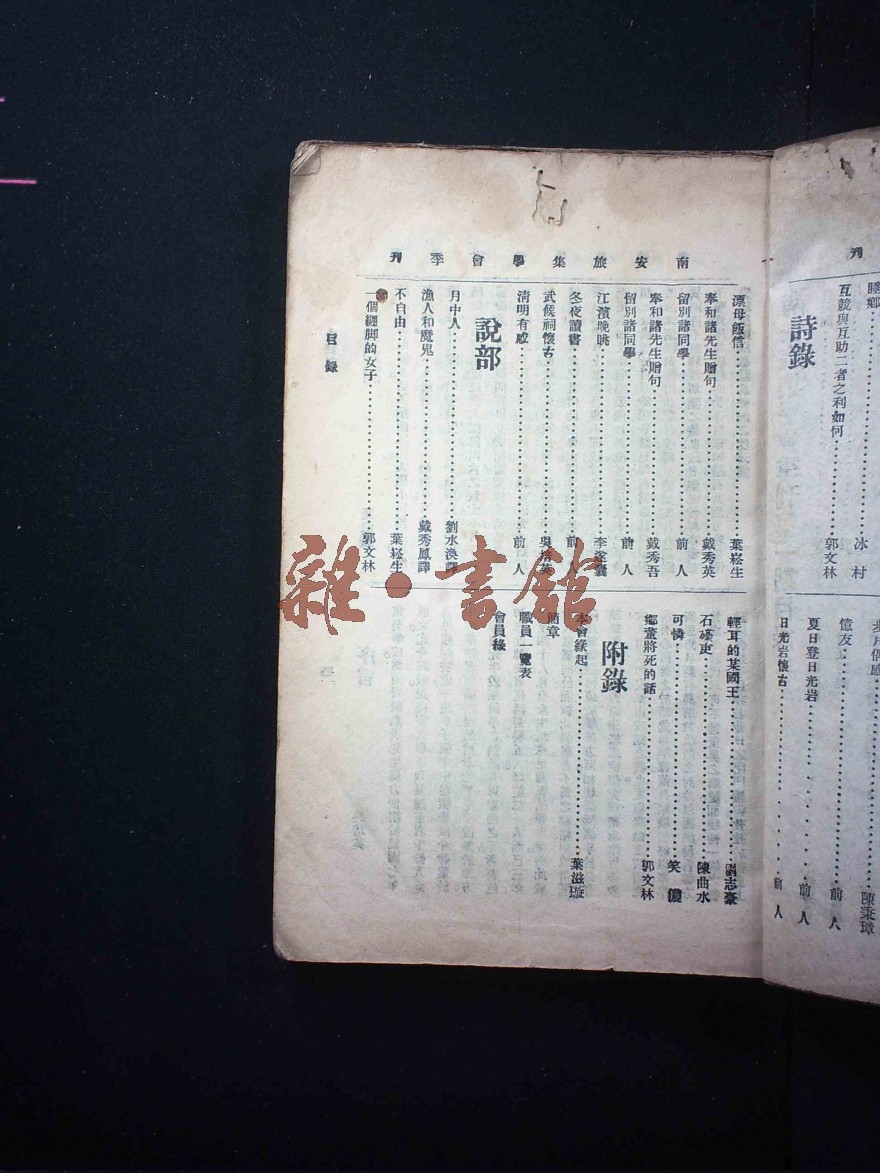 刊
睡鄉
互競與互助二者之利如何
冰村
郭文林
詩錄
步月偶感
陳秉璋
憶友
前人
夏日登日光岩
前人
日光岩懷古
前人
南安旅集學會季刊
漂母飯信 葉崧生
奉和諸先生贈句 戴秀英
留別諸同學 前人
奉和諸先生贈句 戴秀吾
留別諸同學 前人
江濱晚眺 李
冬夜讀書 前人
武侯祠懷古
清明有感 前人
說部
月中人 劉水渙譯
漁人和魔鬼 戴秀鳳譯
不自由 葉崧生
一個纏脚的女子 郭文林
輕耳的某國王 劉志豪
石壕吏 陳曲水
可憐 笑儂
鄉董將死的話 郭文林
附錄
本會緣起 葉滋璇
簡章
職員一覽表
會員錄
目錄
雜·書館